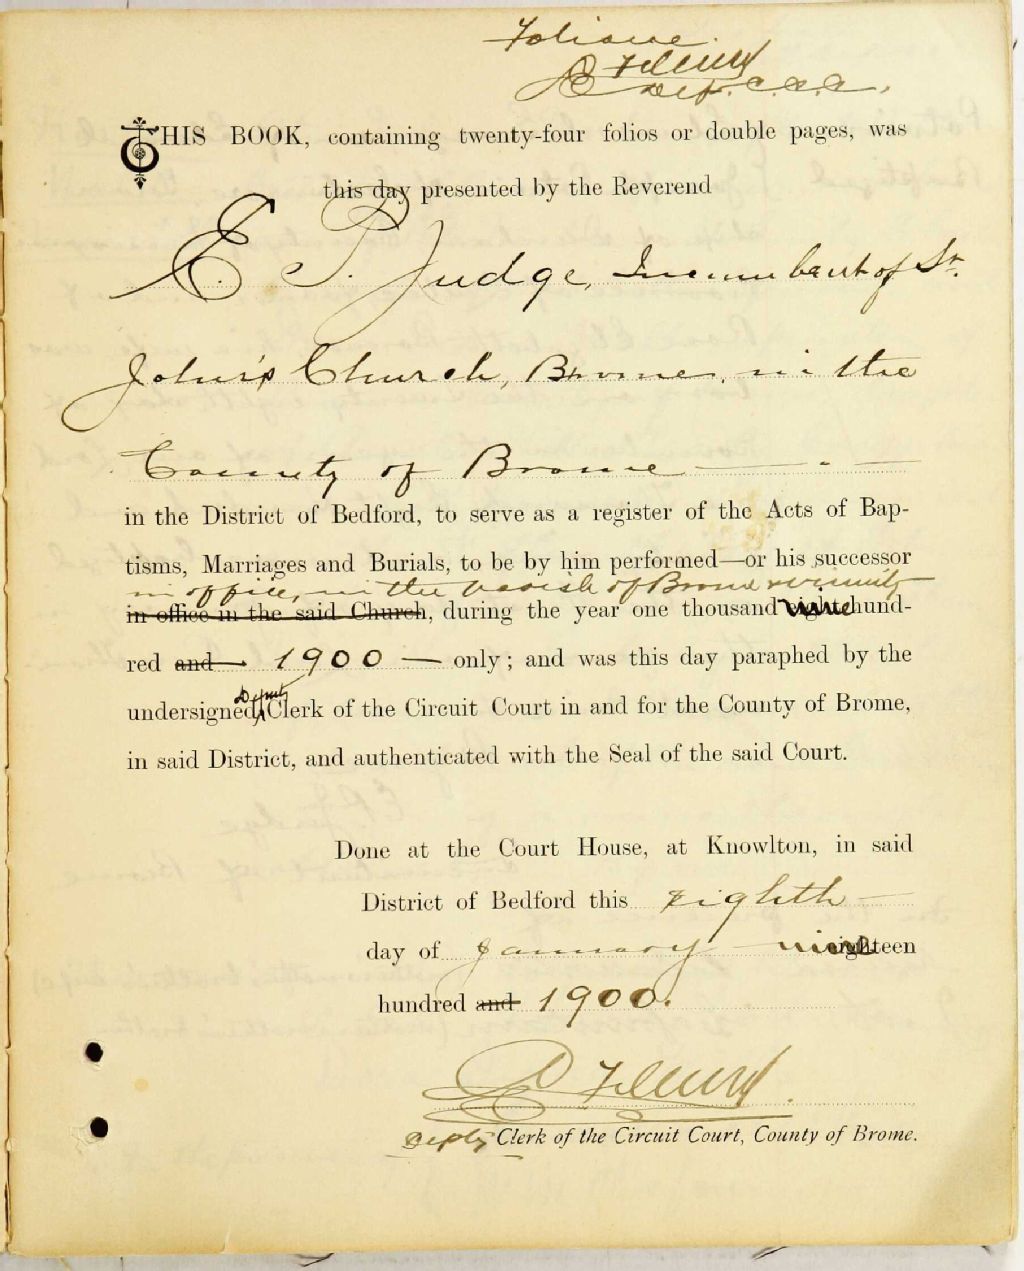 Folio one.
Dep. C.C.C.
THIS BOOK, containing twenty-four folios or double pages, was
this day presented by the Reverend
E. P. Judge, Incumbent of St.
John's Church, Brome, in the
County of Brome
in the District of Bedford, to serve as a register of the Acts of Bap-
tisms, Marriages and Burials, to be by him performed—or his successor
in office, in the parish of Brome & vicinity
in office in the said Church, during the year one thousand nine hund-
red and 1900 — only; and was this day paraphed by the
Deputy
undersigned, Clerk of the Circuit Court in and for the County of Brome,
in said District, and authenticated with the Seal of the said Court.
Done at the Court House, at Knowlton, in said
District of Bedford this eighth
day of January nineteen
hundred and 1900.
Depty Clerk of the Circuit Court, County of Brome.